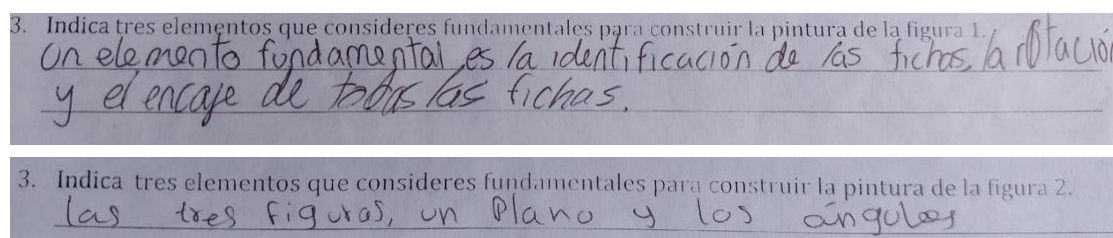 3. Indica tres elementos que consideres fundamentales para construir la pintura de la figura 1.
Un elemento fundamental es la identificación de las fichas, la rotación
y el encaje de todas las fichas.
3. Indica tres elementos que consideres fundamentales para construir la pintura de la figura 2.
las tres figuras, un Plano y los ángulos